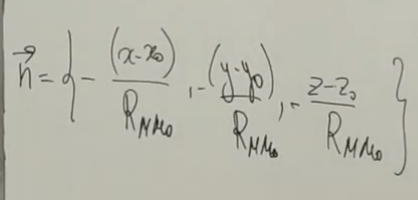 $\vec{n} = \left\{ -\frac{(x-x_0)}{R_{MM_0}}, -\frac{(y-y_0)}{R_{MM_0}}, -\frac{z-z_0}{R_{MM_0}} \right\}$